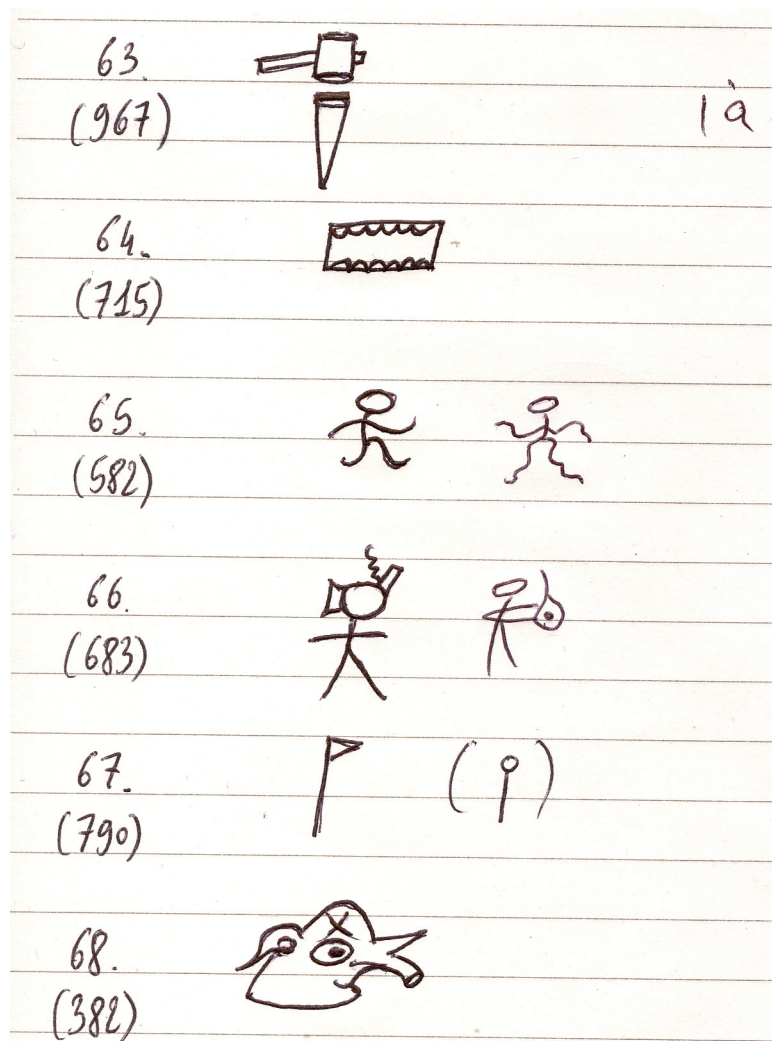 63.
(967)
là
64.
(715)
65.
(582)
66.
(683)
67.
(790)
68.
(382)